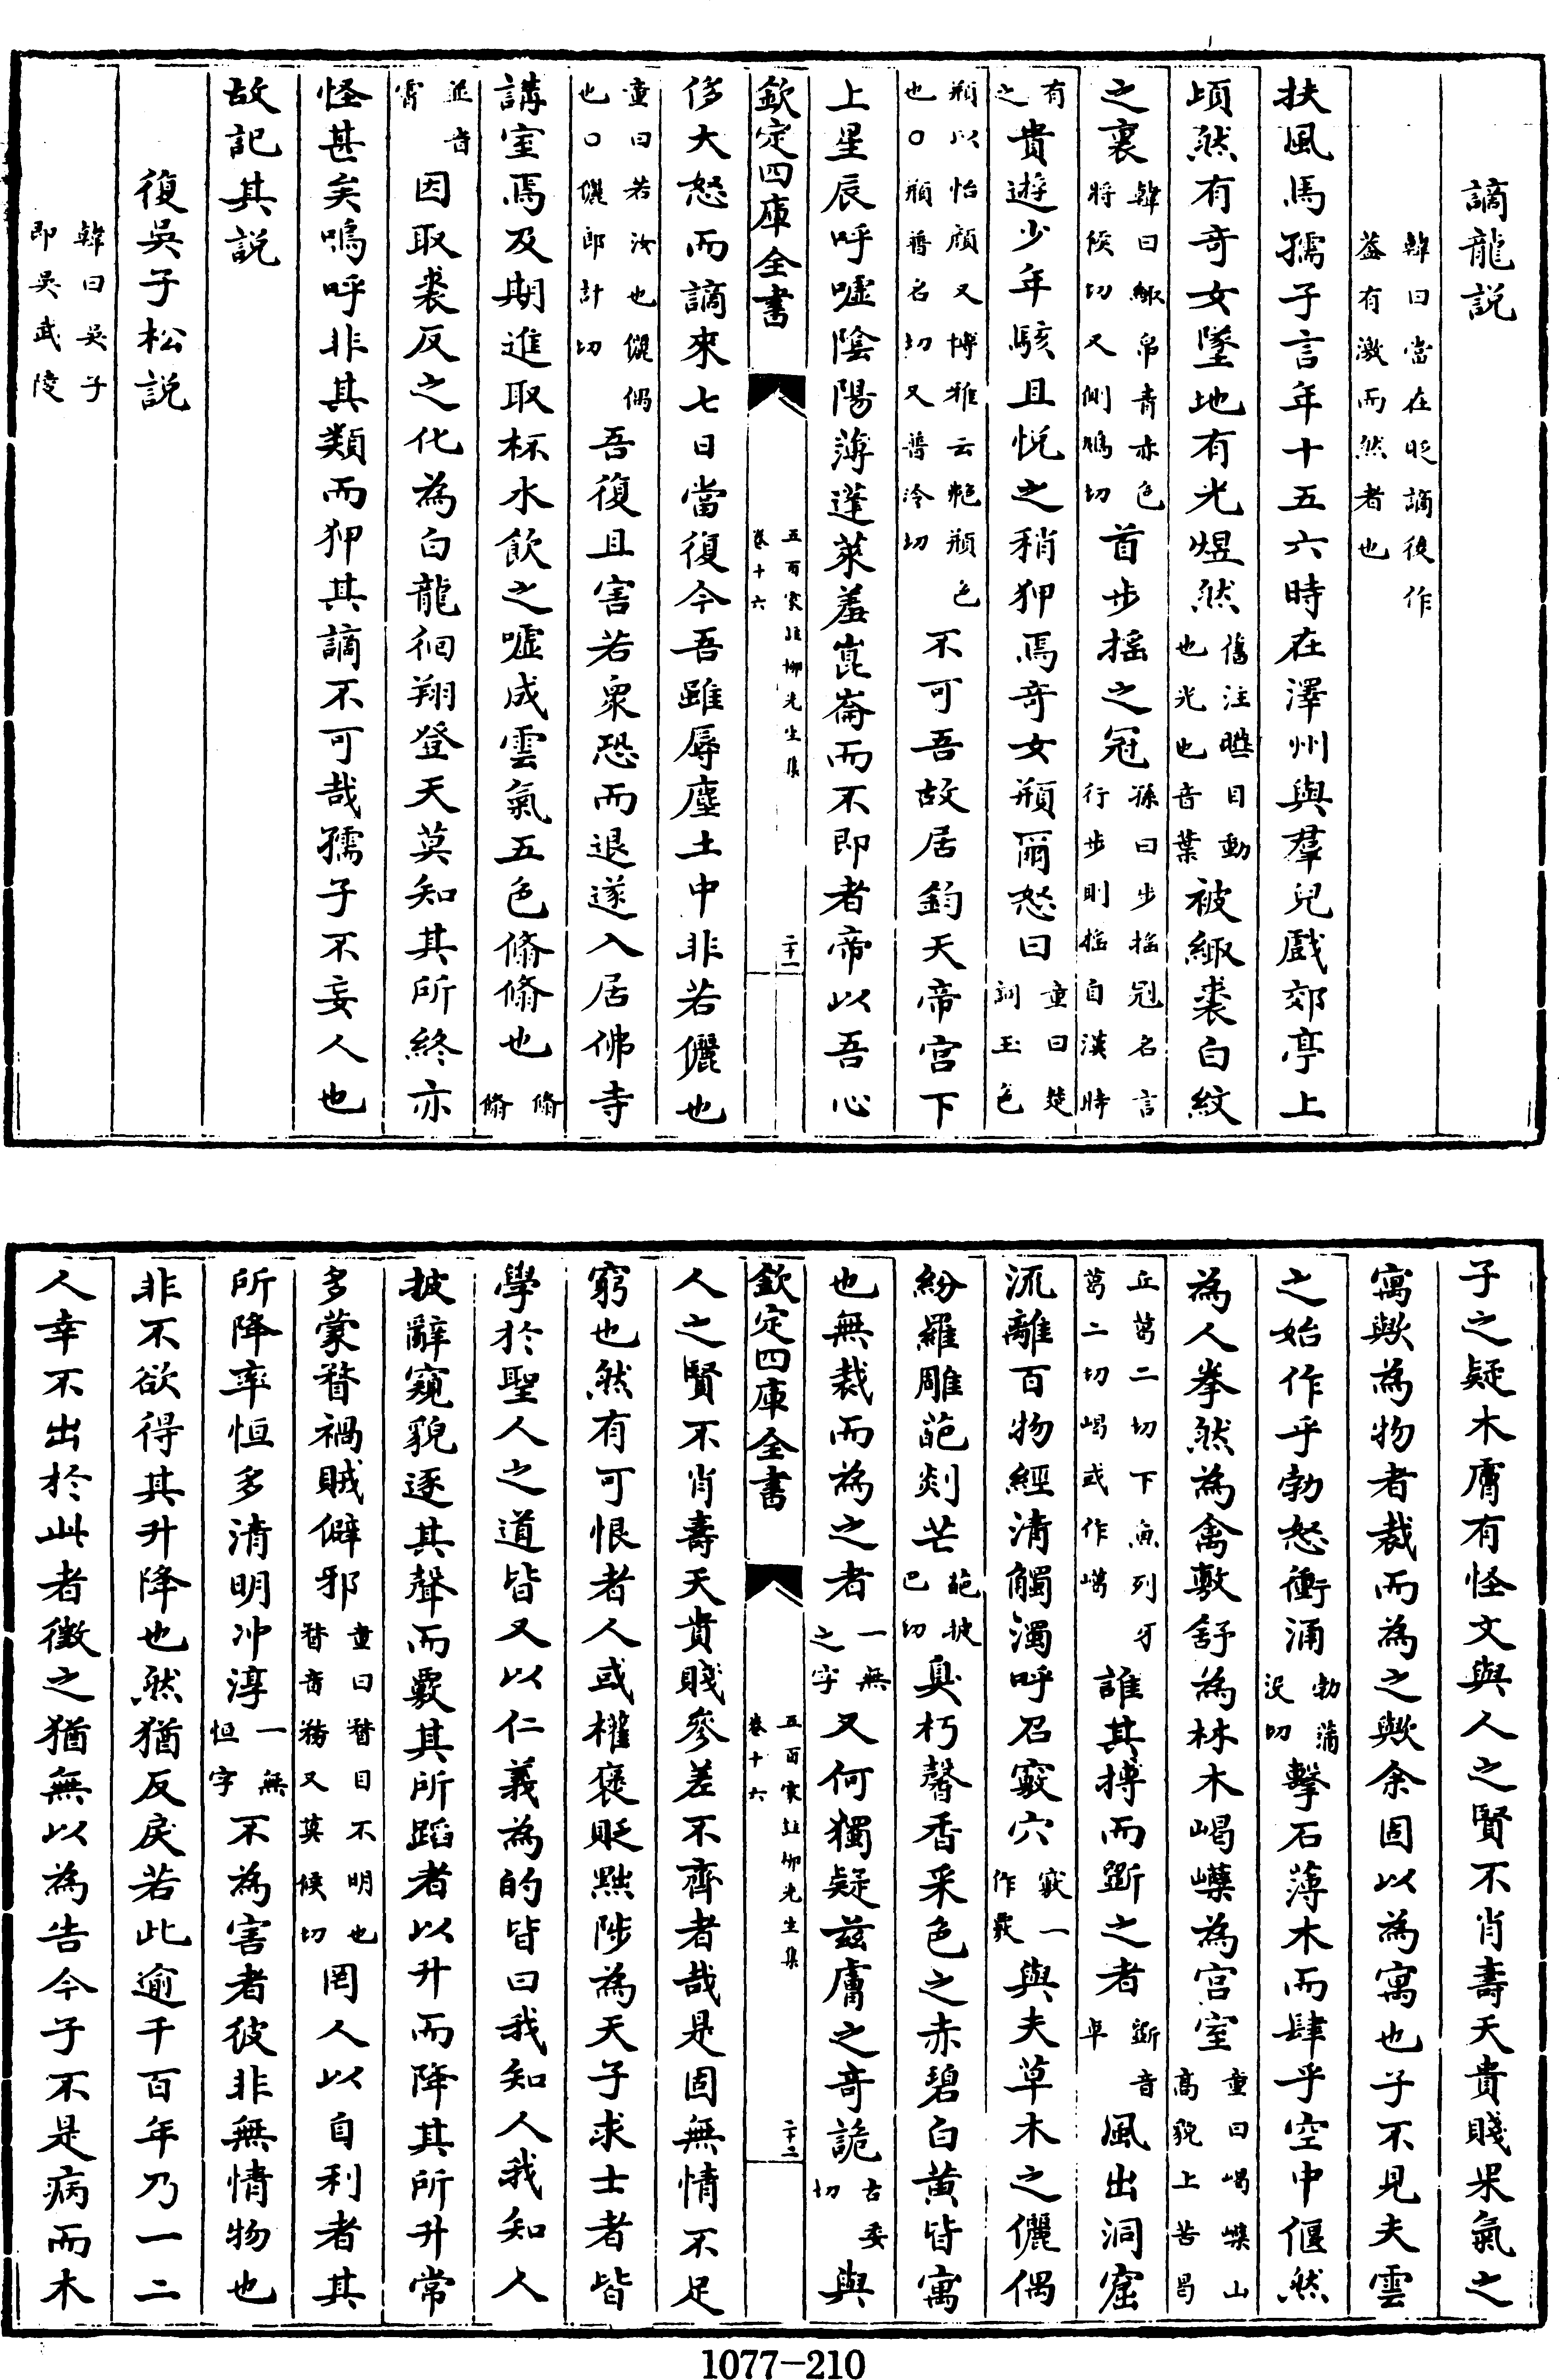 謫龍説
韓曰當在貶謫後作
蓋有激而然者也
扶風馬孺子言年十五六時在澤州與羣兒戲郊亭上
頃然有奇女墜地有光煜然舊注曄目動也光也音葉被緅裘白紋
之裏韓曰緅帛青赤色將侯切又側鳩切首步揺之冠孫曰步揺冠名言行步則揺自漢時
有之貴遊少年駭且悅之稍狎焉奇女頩爾怒曰童曰楚詞玉色
頩以怡顔又博雅云艴頩色也○頩普名切又普冷切不可吾故居鈞天帝宫下
上星辰呼嘘陰陽薄蓬萊羞崑崙而不即者帝以吾心
欽定四庫全書
五百家注柳先生集
卷十六
二十一
侈大怒而謫來七日當復今吾雖辱塵土中非若儷也
童曰若汝也儷偶也○儷郎計切吾復且害若衆恐而退遂入居佛寺
講室焉及期進取杯水飲之嘘成雲氣五色翛翛也翛翛
並音霄因取裘反之化為白龍徊翔登天莫知其所終亦
怪甚矣嗚呼非其類而狎其謫不可哉孺子不妄人也
故記其説
復吳子松説
韓曰吳子
即吳武陵
子之疑木膚有怪文與人之賢不肖壽夭貴賤果氣之
寓歟為物者裁而為之歟余固以為寓也子不見夫雲
之始作乎勃怒衝涌勃蒲没切擊石薄木而肆乎空中偃然
為人拳然為禽敷舒為林木嵑嶫為宫室童曰嵑嶫山高貌上苦曷
丘葛二切下魚列牙葛二切嵑或作嶱誰其搏而斵之者斵音卓風出洞窟
流離百物經清觸濁呼召竅穴竅一作籔與夫草木之儷偶
紛羅雕葩剡芒葩披巴切臭朽馨香采色之赤碧白黄皆寓
也無裁而為之者一無之字又何獨疑兹膚之奇詭古委切與
欽定四庫全書
五百家註柳先生集
卷十六
二十二
人之賢不肖壽夭貴賤參差不齊者哉是固無情不足
窮也然有可恨者人或權褒貶黜陟為天子求士者皆
學於聖人之道皆又以仁義為的皆曰我知人我知人
披辭窺貌逐其聲而覈其所蹈者以升而降其所升常
多蒙瞀禍賊僻邪童曰瞀目不明也瞀音務又莫候切罔人以自利者其
所降率恒多清明冲淳一無恒字不為害者彼非無情物也
非不欲得其升降也然猶反戾若此逾千百年乃一二
人幸不出於此者徵之猶無以為告今子不是病而木
1077-210